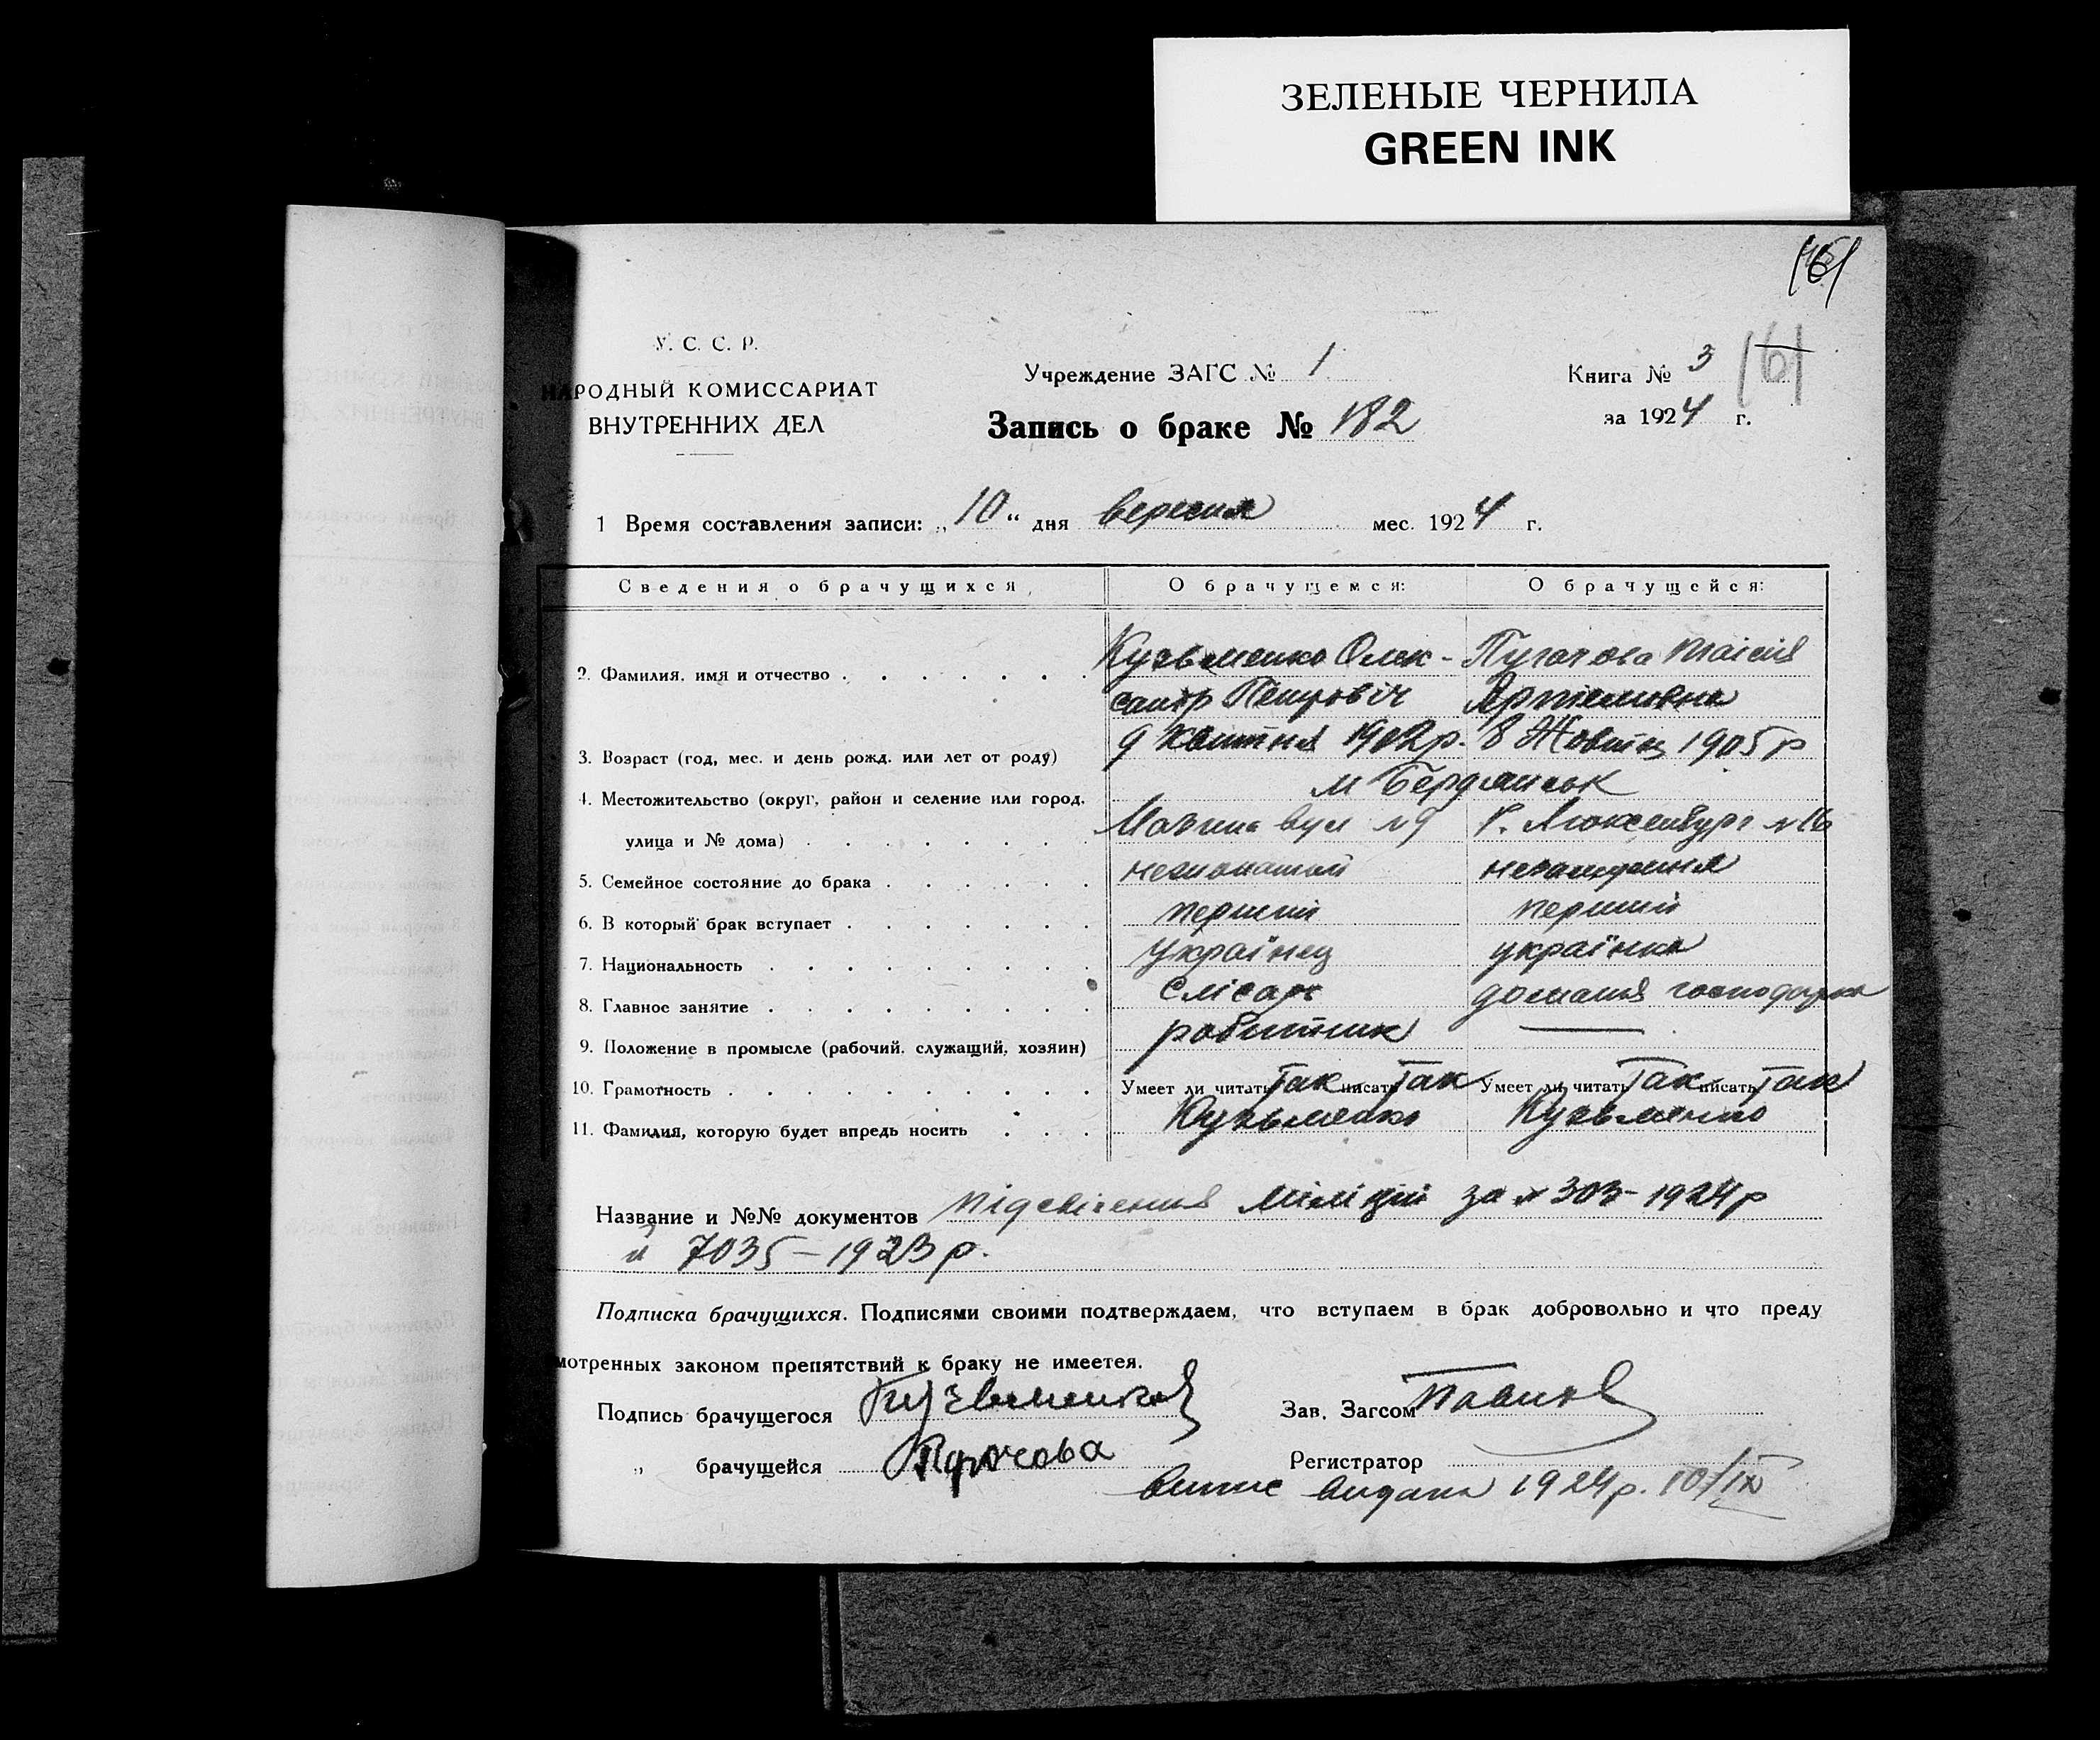 ЗЕЛЕНЫЕ ЧЕРНИЛА
GREEN INK
161
У. С. С. Р.
НАРОДНЫЙ КОМИССАРИАТ
ВНУТРЕННИХ ДЕЛ
Учреждение ЗАГС № 1
Запись о браке № 182
Книга № 3 161
за 1924 г.
1 Время составления записи: „10“ дня вересня мес. 1924 г.
Сведения о брачущихся, О брачущемся: О брачущейся:
2. Фамилия, имя и отчество Кузьменко Олек- Пугачова Таісія
сандр Петровіч Артемовна
3. Возраст (год, мес. и день рожд. или лет от роду) 9 квитня 1902 р. 8 Жовтн 1905 р
4. Местожительство (округ, район и селение или город, м Бердянськ
улица и № дома) вул №9 Р. Люксембург №16
5. Семейное состояние до брака нежонатий незамужня
6. В который брак вступает перший перший
7. Национальность українец українка
8. Главное занятие Слісарь домашня господарка
9. Положение в промысле (рабочий, служащий, хозяин) робитник —
10. Грамотность Умеет ли читать Так писать Так Умеет ли читать Так писать Так
11. Фамилия, которую будет впредь носить Кузьменко Кузьменко
Название и №№ документов міліції за № 303 - 1924 р
й 7035 — 1923 р.
Подписка брачущихся. Подписями своими подтверждаем, что вступаем в брак добровольно и что преду
мотренных законом препятствий к браку не имеется.
Подпись брачущегося Кузьменко Зав. Загсом
„ брачущейся Пугачова Регистратор
Випис видана 1924 р. 10/IX